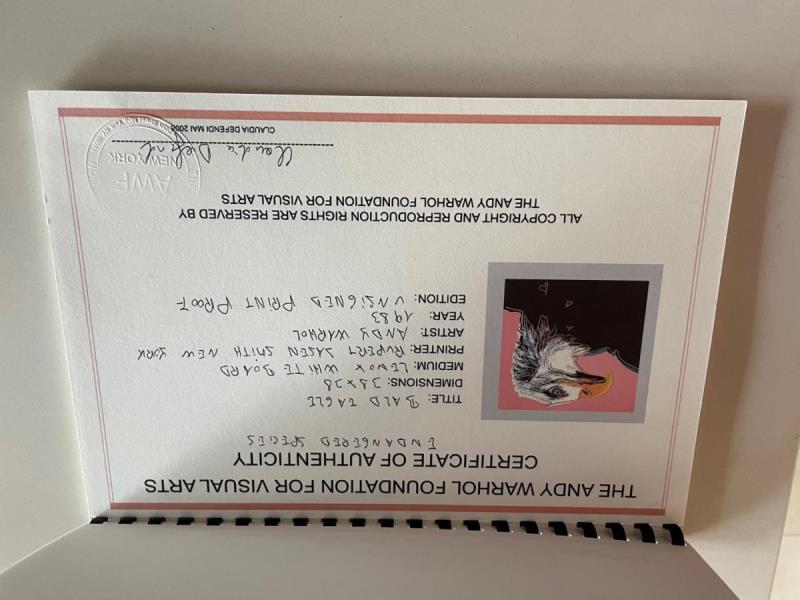 THE ANDY WARHOL FOUNDATION FOR VISUAL ARTS
CERTIFICATE OF AUTHENTICITY
ENDANGERED SPECIES
TITLE: BALD EAGLE
DIMENSIONS: 38 x 38
MEDIUM: LENOX WHITE BOARD
PRINTER: RUPERT JASEN SMITH NEW YORK
ARTIST: ANDY WARHOL
YEAR: 1983
EDITION: UNSIGNED PRINT PROOF
ALL COPYRIGHT AND REPRODUCTION RIGHTS ARE RESERVED BY
THE ANDY WARHOL FOUNDATION FOR VISUAL ARTS
Claudia Defendi
CLAUDIA DEFENDI MAI
AWF
NEW YORK